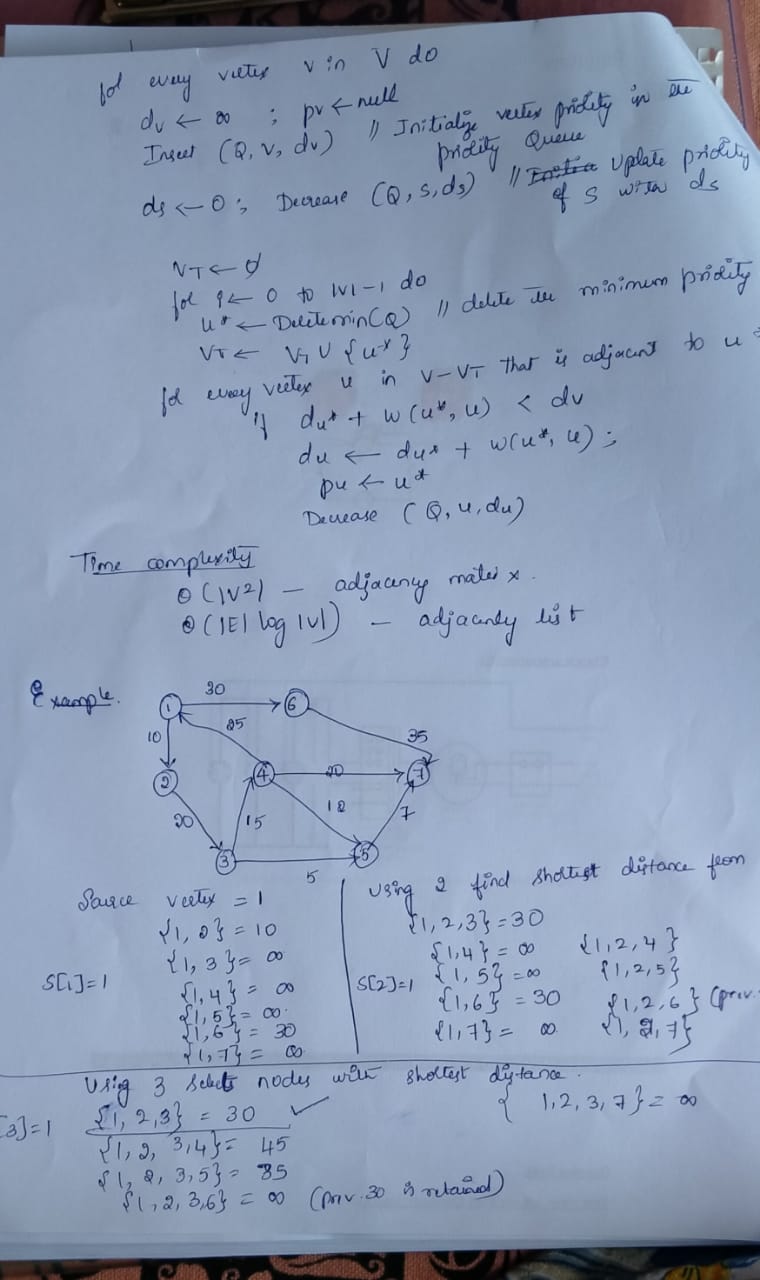 for every vertex v in V do
dv ← ∞ ; pv ← null
Insert (Q, v, dv) // Initialize vertex priority in the
priority Queue
ds ← 0 ; Decrease (Q, s, ds) // Update priority
of S with ds
VT ← ∅
for i ← 0 to |V|-1 do
u* ← Deletemin(Q) // delete the minimum priority
VT ← VT ∪ {u*}
for every vertex u in V-VT that is adjacent to u*
if du* + w(u*, u) < dv
du ← du* + w(u*, u) ;
pu ← u*
Decrease (Q, u, du)
Time complexity
Θ (|V2) — adjacency matrix.
Θ (|E| log |V|) — adjacency list
Example.
1 30 6
25 35
10
2 4 20 7
20 15 12 7
3 5 5
Source vertex = 1
{1, 2} = 10
{1, 3} = ∞
S[1]=1
{1, 4} = ∞
{1, 5} = ∞.
{1, 6} = 30
{1, 7} = ∞
Using 2 find shortest distance from
{1, 2, 3} = 30
{1, 4} = ∞ {1, 2, 4}
S[2]=1 {1, 5} = ∞ {1, 2, 5}
{1, 6} = 30 {1, 2, 6} (priv.
{1, 7} = ∞. {1, 2, 7}
Using 3 selects nodes with shortest distance.
3]=1 {1, 2, 3} = 30 ✓ { 1, 2, 3, 7} = ∞
{1, 2, 3, 4} = 45
{1, 2, 3, 5} = 35
{1, 2, 3, 6} = ∞ (priv. 30 is retained)